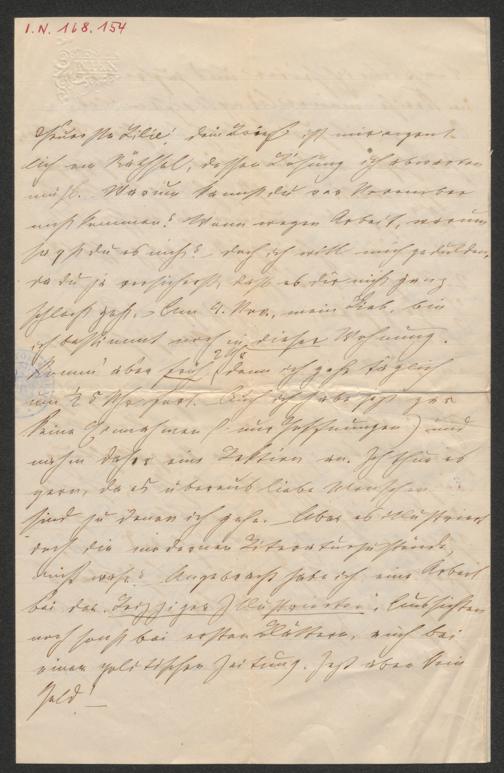 I.N. 168.154
Teuerste Lilie! dein Brief ist mir eigent-
lich ein Räthsel, dessen Lösung ich abwarten
muß. Warum kannst du vor November
nicht kommen? Wenn wegen Arbeit, warum
sagst du es nicht? doch ich will mich gedulden,
da du ja versicherst, daß es dir nicht ganz
schlecht geht. Am 4. Nov., mein Lieb, bin
ich bestimmt noch in dieser Wohnung.
Komm' aber früh, denn ich gehe täglich
um ½ 5 Uhr fort. Auch ich habe jetzt gar
keine Einnahmen (nur Hoffnungen) und
nahm daher eine Lektion an. Ich thue es
gern, da es überaus liebe Menschen
sind zu denen ich gehe. Aber es illustriert
doch die modernen Literaturzustände,
nicht wahr? Angebracht habe ich eine Arbeit
bei der "Leipziger Illustrierten", Aussichten
noch sonst bei ersten Blättern, auch bei
einer politischen Zeitung. Jetzt aber kein
Geld! –